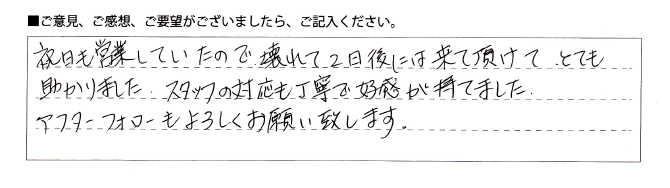 ■ご意見、ご感想、ご要望がございましたら、ご記入ください。
祝日も営業していたので壊れて2日後には来て頂けて とても
助かりました. スタッフの対応も丁寧で好感が持てました.
アフターフォローもよろしくお願い致します。